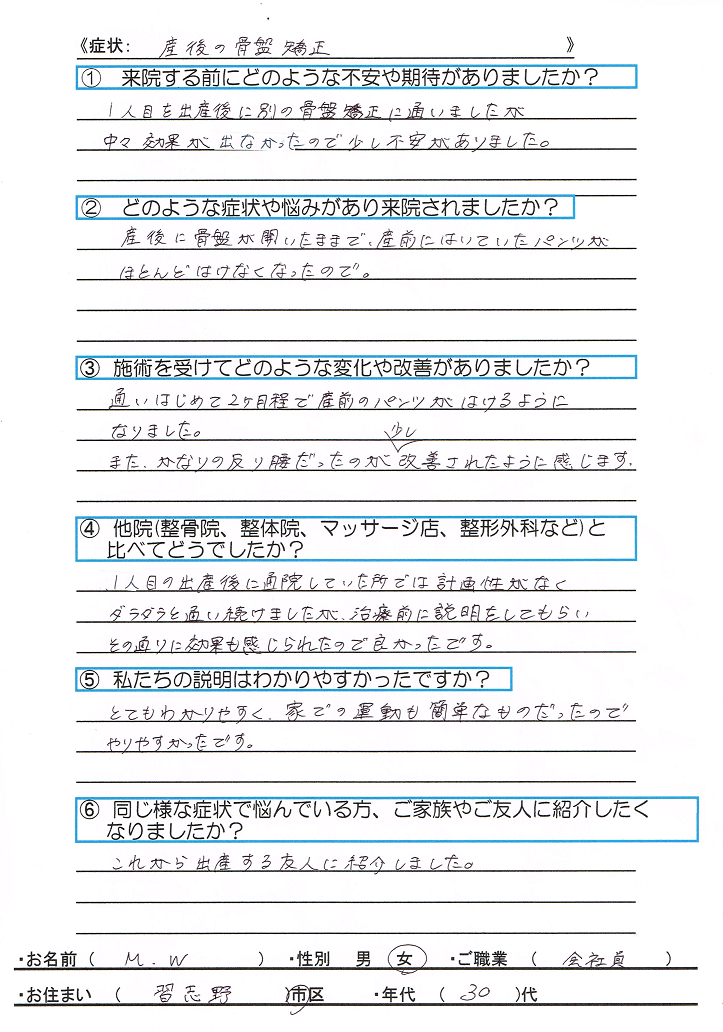 《症状: 産後の骨盤矯正 》
① 来院する前にどのような不安や期待がありましたか？
1人目を出産後に別の骨盤矯正に通いましたが
中々効果が出なかったので少し不安がありました。
② どのような症状や悩みがあり来院されましたか？
産後に骨盤が開いたままで、産前にはいていたパンツが
ほとんどはけなくなったので。
③ 施術を受けてどのような変化や改善がありましたか？
通いはじめて2ヶ月程で産前のパンツがはけるように
なりました。
また、かなりの反り腰だったのが少し改善されたように感じます。
④ 他院(整骨院、整体院、マッサージ店、整形外科など)と
比べてどうでしたか？
1人目の出産後に通院していた所では計画性がなく
ダラダラと通い続けましたが、治療前に説明をしてもらい
その通りに効果も感じられたので良かったです。
⑤ 私たちの説明はわかりやすかったですか？
とてもわかりやすく、家での運動も簡単なものだったので
やりやすかったです。
⑥ 同じ様な症状で悩んでいる方、ご家族やご友人に紹介したく
なりましたか？
これから出産する友人に紹介しました。
・お名前（ M.W ） ・性別 男 女 ・ご職業 （ 会社員 ）
・お住まい （ 習志野 ）市区 ・年代 （ 30 ）代